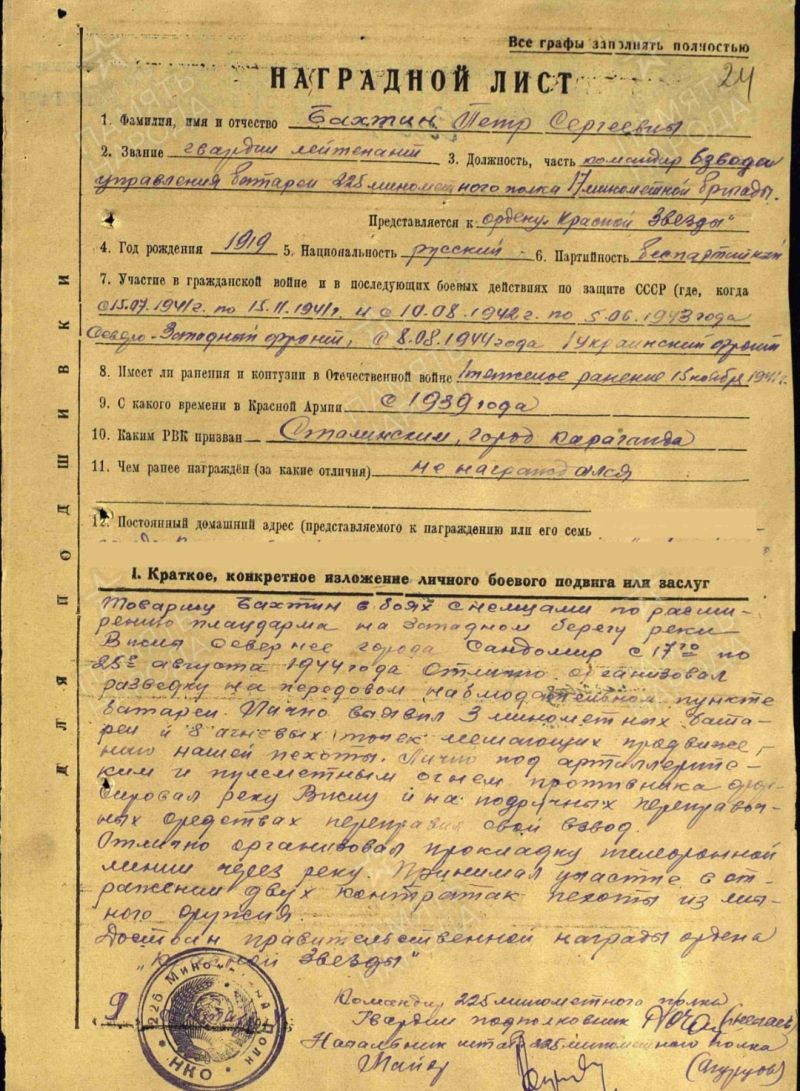 Все графы заполнять полностью
24
НАГРАДНОЙ ЛИСТ
1. Фамилия, имя и отчество Бахтин Петр Сергеевич
2. Звание гвардии лейтенант 3. Должность, часть командир взвода
управления батареи 225 минометного полка 17 минометной бригады.
Представляется к ордену "Красной Звезды"
4. Год рождения 1919 5. Национальность русский 6. Партийность беспартийный
7. Участие в гражданской войне и в последующих боевых действиях по защите СССР (где, когда
с 15.07.1941г. по 15.11.1941г. и с 10.08.1942г. по 5.06.1943 года
Северо-Западный фронт, с 8.08.1944 года 1 Украинский фронт
8. Имеет ли ранения и контузии в Отечественной войне 1 тяжелое ранение 15 ноября 1941г.
9. С какого времени в Красной Армии с 1939 года
10. Каким РВК призван Сталинским, город Караганда
11. Чем ранее награждён (за какие отличия) не награждался
12. Постоянный домашний адрес (представляемого к награждению или его семь
ДЛЯ ПОДШИВКИ
I. Краткое, конкретное изложение личного боевого подвига или заслуг
Товарищ Бахтин в боях с немцами по расши-
рению плацдарма на западном берегу реки
Висла севернее города Сандомир с 17го по
25е августа 1944 года отлично организовал
разведку на передовом наблюдательном пункте
батареи. Лично выявил 3 минометных бата-
реи и 8 огневых точек мешающих продвиже-
нию нашей пехоты. Лично под артиллерийс-
ким и пулеметным огнем противника фор-
сировал реку Вислу и на подручных переправоч-
ных средствах переправил свой взвод.
Отлично организовал прокладку телефонной
линии через реку. Принимал участие в от-
ражении двух контратак пехоты из лич-
ного оружия.
Достоин правительственной награды ордена
"Красной Звезды"
Командир 225 минометного полка
Гвардии подполковник
Начальник штаба 225 минометного полка
Майор
225 Минометный Полк
НКО
ПАМЯТЬ НАРОДА